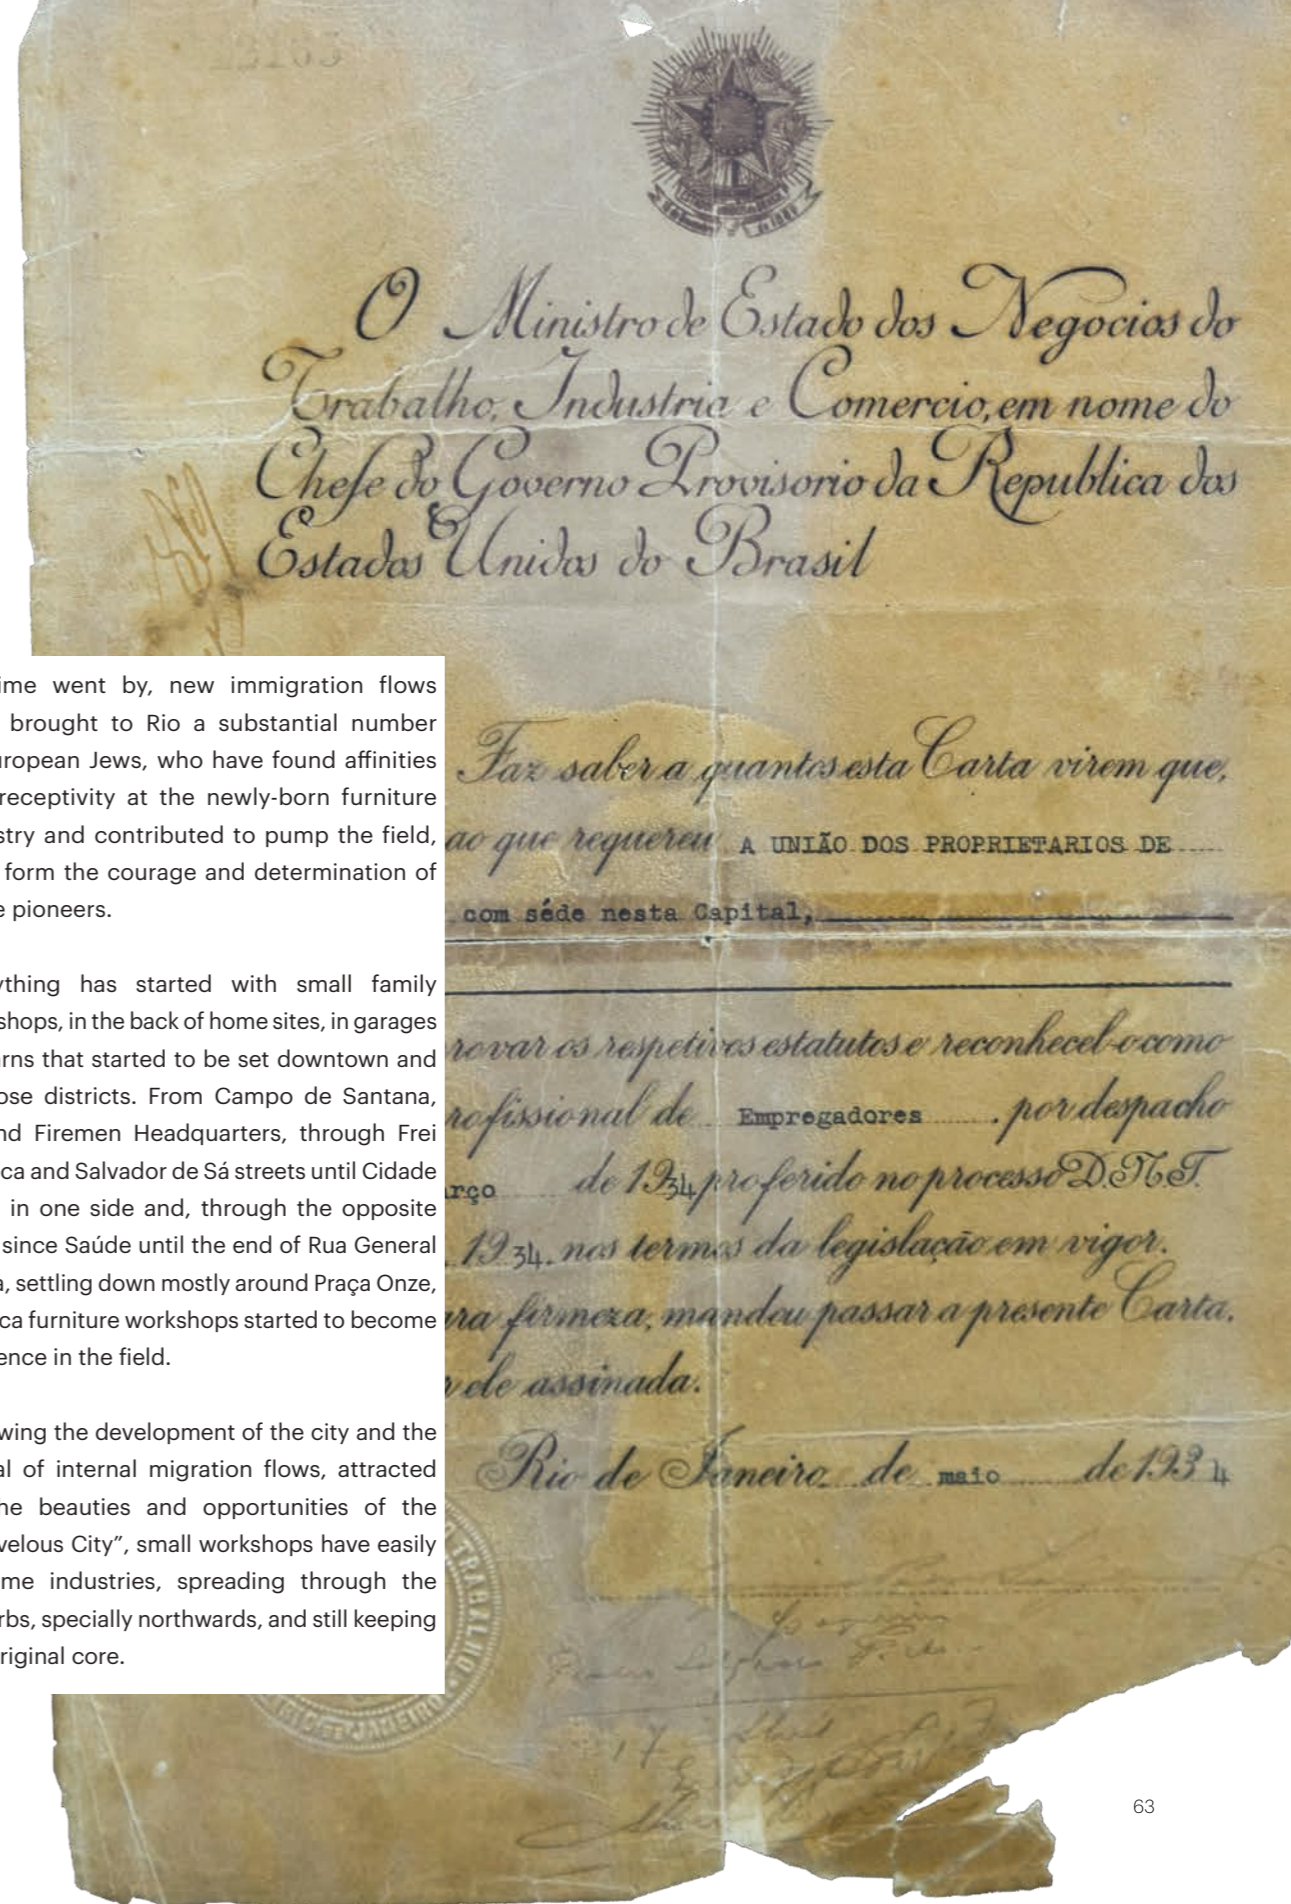 O Ministro de Estado dos Negocios do
Trabalho, Industria e Comercio, em nome do
Chefe do Governo Provisorio da Republica dos
Estados Unidos do Brasil
Faz saber a quantos esta Carta virem que,
ao que requereu A UNIÃO DOS PROPRIETARIOS DE
com séde nesta Capital,
rovar os respetivos estatutos e reconhecel-o como
rofissional de Empregadores . por despacho
rço de 1934 proferido no processo D.N.T.
1934. nos termos da legislação em vigor.
ra firmeza, mandou passar a presente Carta.
r ele assinada.
Rio de Janeiro de maio de 1934
TRABALHO
RIO DE JANEIRO
ime went by, new immigration flows
brought to Rio a substantial number
uropean Jews, who have found affinities
receptivity at the newly-born furniture
stry and contributed to pump the field,
form the courage and determination of
e pioneers.
ything has started with small family
shops, in the back of home sites, in garages
arns that started to be set downtown and
ose districts. From Campo de Santana,
nd Firemen Headquarters, through Frei
ca and Salvador de Sá streets until Cidade
in one side and, through the opposite
since Saúde until the end of Rua General
a, settling down mostly around Praça Onze,
ca furniture workshops started to become
ence in the field.
wing the development of the city and the
al of internal migration flows, attracted
he beauties and opportunities of the
velous City”, small workshops have easily
me industries, spreading through the
rbs, specially northwards, and still keeping
riginal core.
63